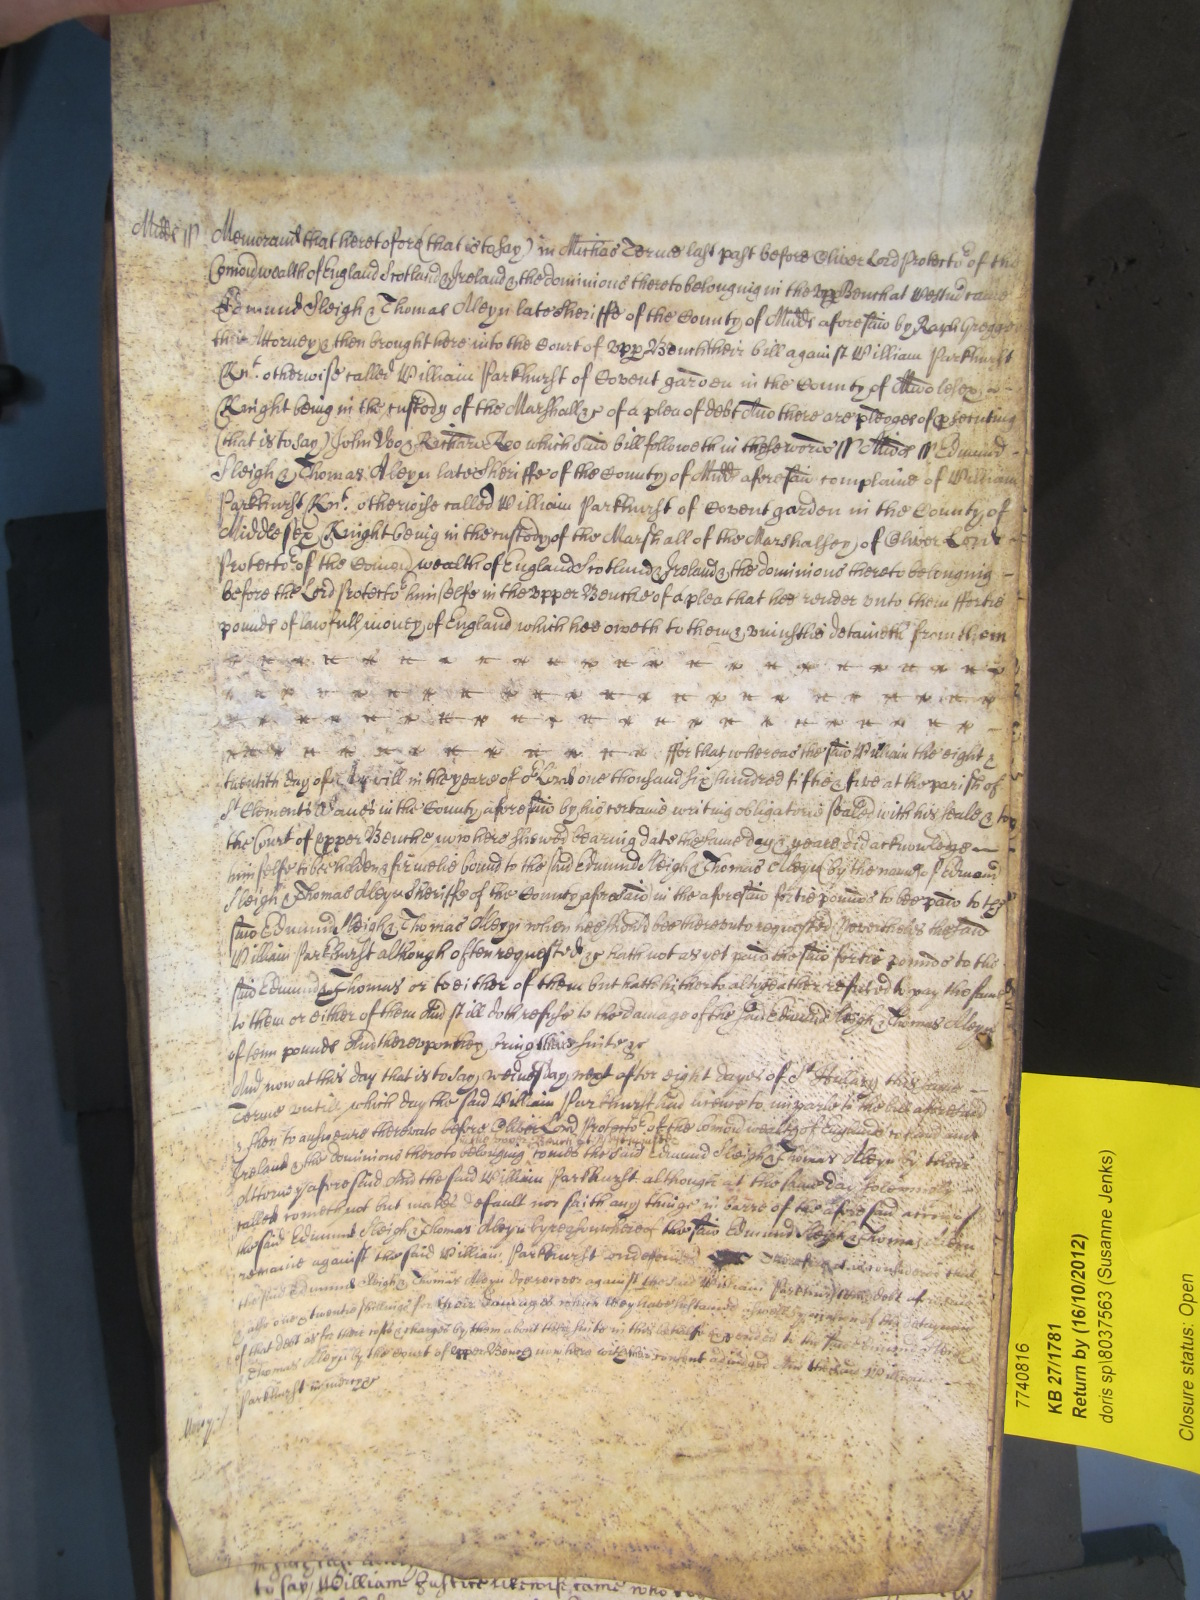 Midds ss Memorand that heretofore (that is to say) in Michas Terme last past before Oliver Lord Protector of the
Comonwealth of England Scotland & Ireland & the dominions thereto belonging in the upp Bench at Westm came
Edmund Sleigh & Thomas Aleyn late Sheriffe of the County of Midds aforesaid by Raph Gregge
their Attorney & then brought here into the Court of upp Bench their bill against William Parkhurst
Knt. otherwise called William Parkhurst of Covent garden in the County of Middlesex
Knight being in the custody of the Marshall &c of a plea of debt And there are pledges of psecuting
(that is to say) John Doo & Richard Roo which said bill followeth in these words ss Midds ss Edmund
Sleigh & Thomas Aleyn late Sheriffe of the County of Midds aforesaid complaine of William
Parkhurst Knt. otherwise called William Parkhurst of Covent garden in the County of
Middlesex Knight being in the custody of the Marshall of the Marshalsey of Oliver Lord
Protector of the Comonwealth of England Scotland & Ireland & the dominions thereto belonging
before the Lord Protector himselfe in the upper Benche of a plea that hee render unto them fortie
pounds of lawfull money of England which hee oweth to them & uniustlie detaineth from them
ffor that whereas the said William the eight &
twentith day of Aprill in the yeare of or Lord one thousand six hundred fiftie & five at the parish of
St Clements Danes in the County aforesaid by his certaine writing obligatorie sealed with his seale & to
the Court of upper Benche now here shewed bearing date the same day & yeare did acknowledge
himselfe to bee holden & firmelie bound to the said Edmund Sleigh & Thomas Aleyn by the names of Edmund
Sleigh & Thomas Aleyn Sheriffe of the County aforesaid in the aforesaid fortie pounds to bee paid to the
said Edmund Sleigh & Thomas Aleyn when hee should bee thereunto requested Neverthelesse the said
William Parkhurst although often requested &c hath not as yet paid the said fortie pounds to the
said Edmund & Thomas or to either of them but hath hitherto altogeather refused to pay the same
to them or either of them And still doth refuse to the damage of the said Edmund Sleigh & Thomas Aleyn
of tenn pounds And thereupon they bring their suite &c
And now at this day that is to say wednesday next after eight dayes of St Hillary this same
Terme untill which day the said William Parkhurst had licence to imparle to the bill aforesaid
& then to answeare thereunto before Oliver Lord Protector of the Comonwealth of England Scotland and
in the upper Bench at Westminster
Ireland & the dominions thereto belonging comes the said Edmund Sleigh & Thomas Aleyn by their
Attorney aforesaid And the said William Parkhurst although at the same day solemnely
called cometh not but makes default nor saith any thinge in barre of the aforesaid accion of
the said Edmund Sleigh & Thomas Aleyn by reason whereof the said Edmund Sleigh & Thomas Aleyn
remaine against the said William Parkhurst undefended Therefore it is considered that
the said Edmund Sleigh & Thomas Aleyn doe recover against the said William Parkhurst their debt aforesaid
& alsoe one & twentie shillings for their damages which they have sustained aswell by reason of the detayninge
of that debt as for their costs & charges by them about their suite in this behalfe expended to the said Edmund Sleigh
& Thomas Aleyn by the Court of upper Bench now here with their consent adiudged And the said William
Parkhurst in mercy &c
Mercy
to say William Justice likewise came who
7740816
KB 27/1781
Return by (16/10/2012)
doris sp\8037563 (Susanne Jenks)
Closure status: Open